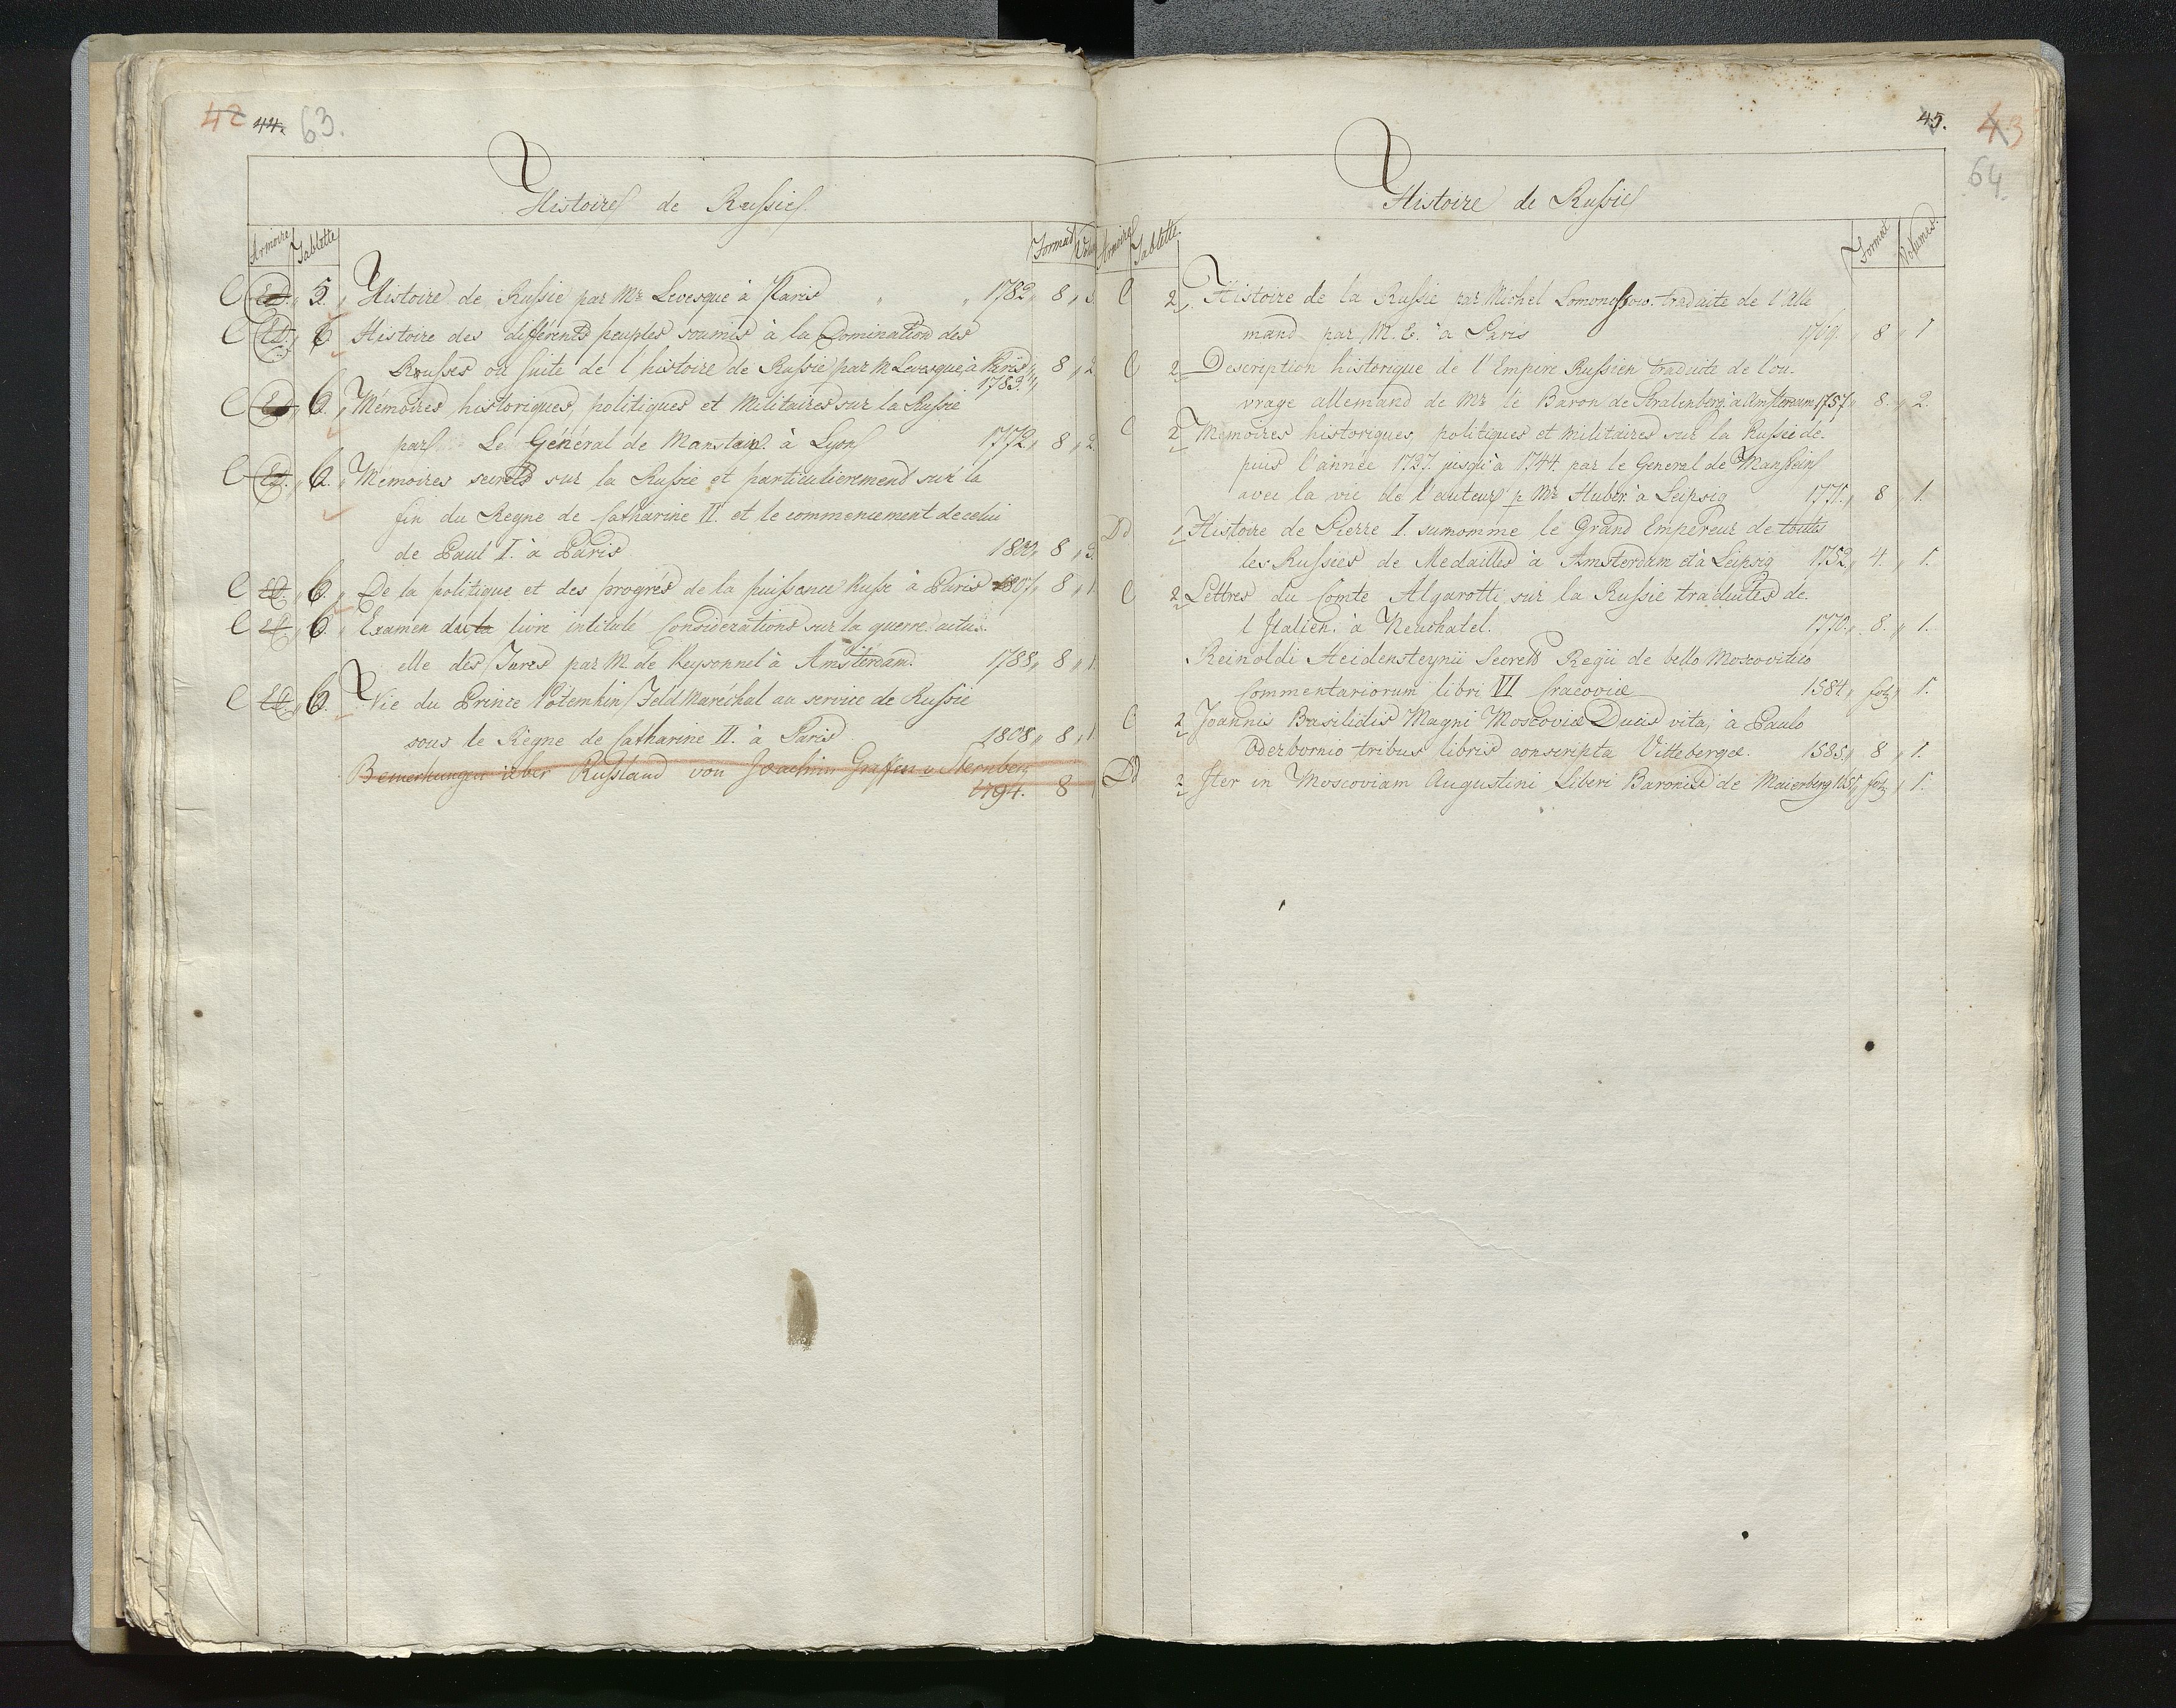 42 44. 63.
Histoire de Russie
Armoire Tablette Format Volu
C Ed. 5. Histoire de Russie par Mr Levesque à Paris " " 1782, 8, 5.
C Ed. 6 Histoire des différents peuples soumis à la Domination des
Russes ou suite de l'histoire de Russie par M Levesque à Paris, 8, 2.
1783.
C Ed. 6. Mémoires historiques, politiques et Militaires sur la Russie
par Le Général de Manstein à Lyon 1772, 8, 2.
C Ed. 6. Mémoires secrets sur la Russie et particulierement sur la
fin du Regne de Catharine II. et le commencement de celui
de Paul I. à Paris 1800, 8, 3.
C Ed. 6. De la politique et des progrès de la puissance Russe à Paris 1807, 8, 1.
C Ed. 6. Examen du livre intitulé Considerations sur la guerre actu-
elle des Turcs par M. de Peysonnel à Amsterdam. 1788, 8, 1.
C Ed. 6. Vie du Prince Potemkin Feld Maréchal au service de Russie
sous le Règne de Catharine II. à Paris 1808, 8, 1
Bemerkungen über Russland von Joachim Grafen v Sternberg
1794. 8
45. 43
64.
Histoire de Russie
Armoire Tablette. Format Volumes.
C 2, Histoire de la Russie par Michel Lomonossow. traduite de l'Alle
mand par M. E. à Paris 1769. 8, 1
C 2, Description historique de l'Empire Russien traduite de l'ou-
vrage allemand de Mr le Baron de Stralenberg. à Amsterdam 1757, 8., 2.
C 2, Memoires historiques, politiques et militaires sur la Russie de-
puis l'année 1727. jusqu'à 1744. par le General de Manstein
avec la vie de l'auteur p Mr Huber à Leipsig 1771., 8, 1.
Dd 1, Histoire de Pierre I. surnomme le Grand Empereur de toutes
les Russies de Medailles à Amsterdam et à Leipsig 1752, 4., 1.
C 2, Lettres du Comte Algarotti sur la Russie traduites de
l'Italien. à Neuchatel. 1770., 8., 1.
Reinoldi Heidensteynii Secret Regii de bello Moscovitico
Commentariorum libri VI Cracoviæ 1584, fol, 1.
C 2, Joannis Basilidis Magni Moscoviæ Ducis vita, à Paulo
Oderbornio tribus libris conscripta Vittebergæ. 1585, 8, 1.
Dd 2, Iter in Moscoviam Augustini Liberi Baronis de Maierberg fol, 1.